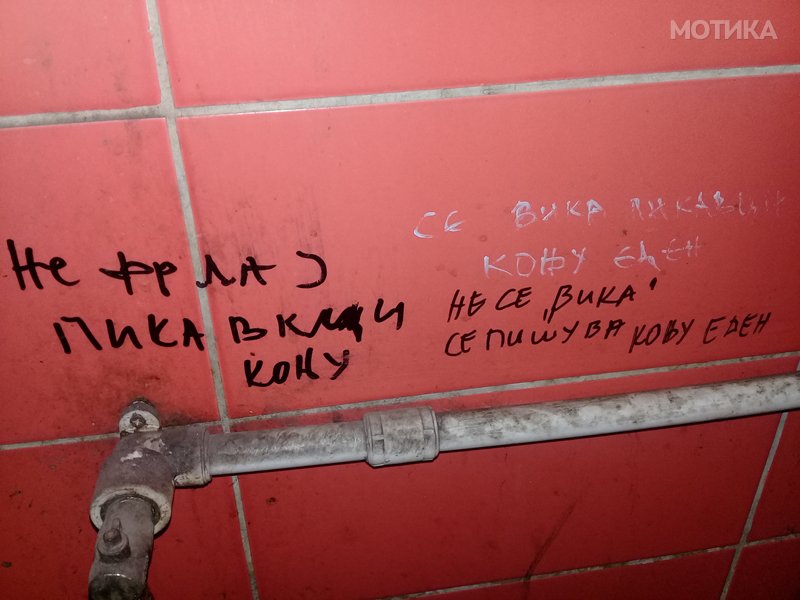 МОТИКА
Не фрлај
ПИКАВКЦИ
КОЊУ
СЕ ВИКА ПИКАВЦИ
КОЊУ ЕДЕН
НЕ СЕ „ВИКА“
СЕ ПИШУВА КОЊУ ЕДЕН